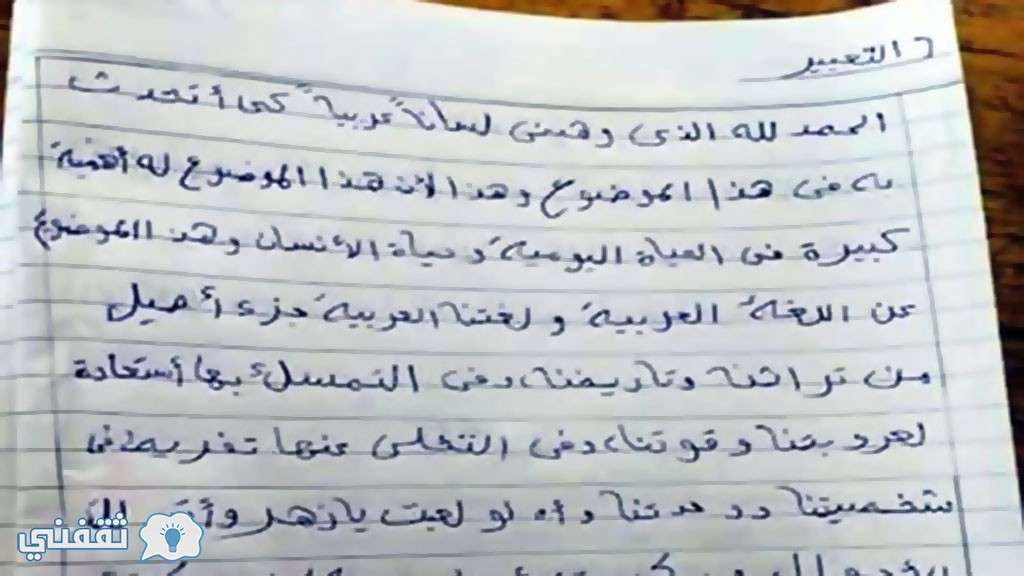 ٦ التعبير
الحمد لله الذى وهبنى لساناً عربياً كى أتحدث
به فى هذا الموضوع وهذا لأن هذا الموضوع له أهمية
كبيرة فى الحياة اليومية وحياة الأنسان وهذا الموضوع
عن اللغة العربية ولغتنا العربية جزء أصيل
من تراثنا وتاريخنا، وفى التمسك بها أستعادة
لعروبتنا وقوتنا، وفى التخلى عنها تفريط فى
شخصيتنا ووحدتنا وأه لو لعبت يازهر
ثقفني